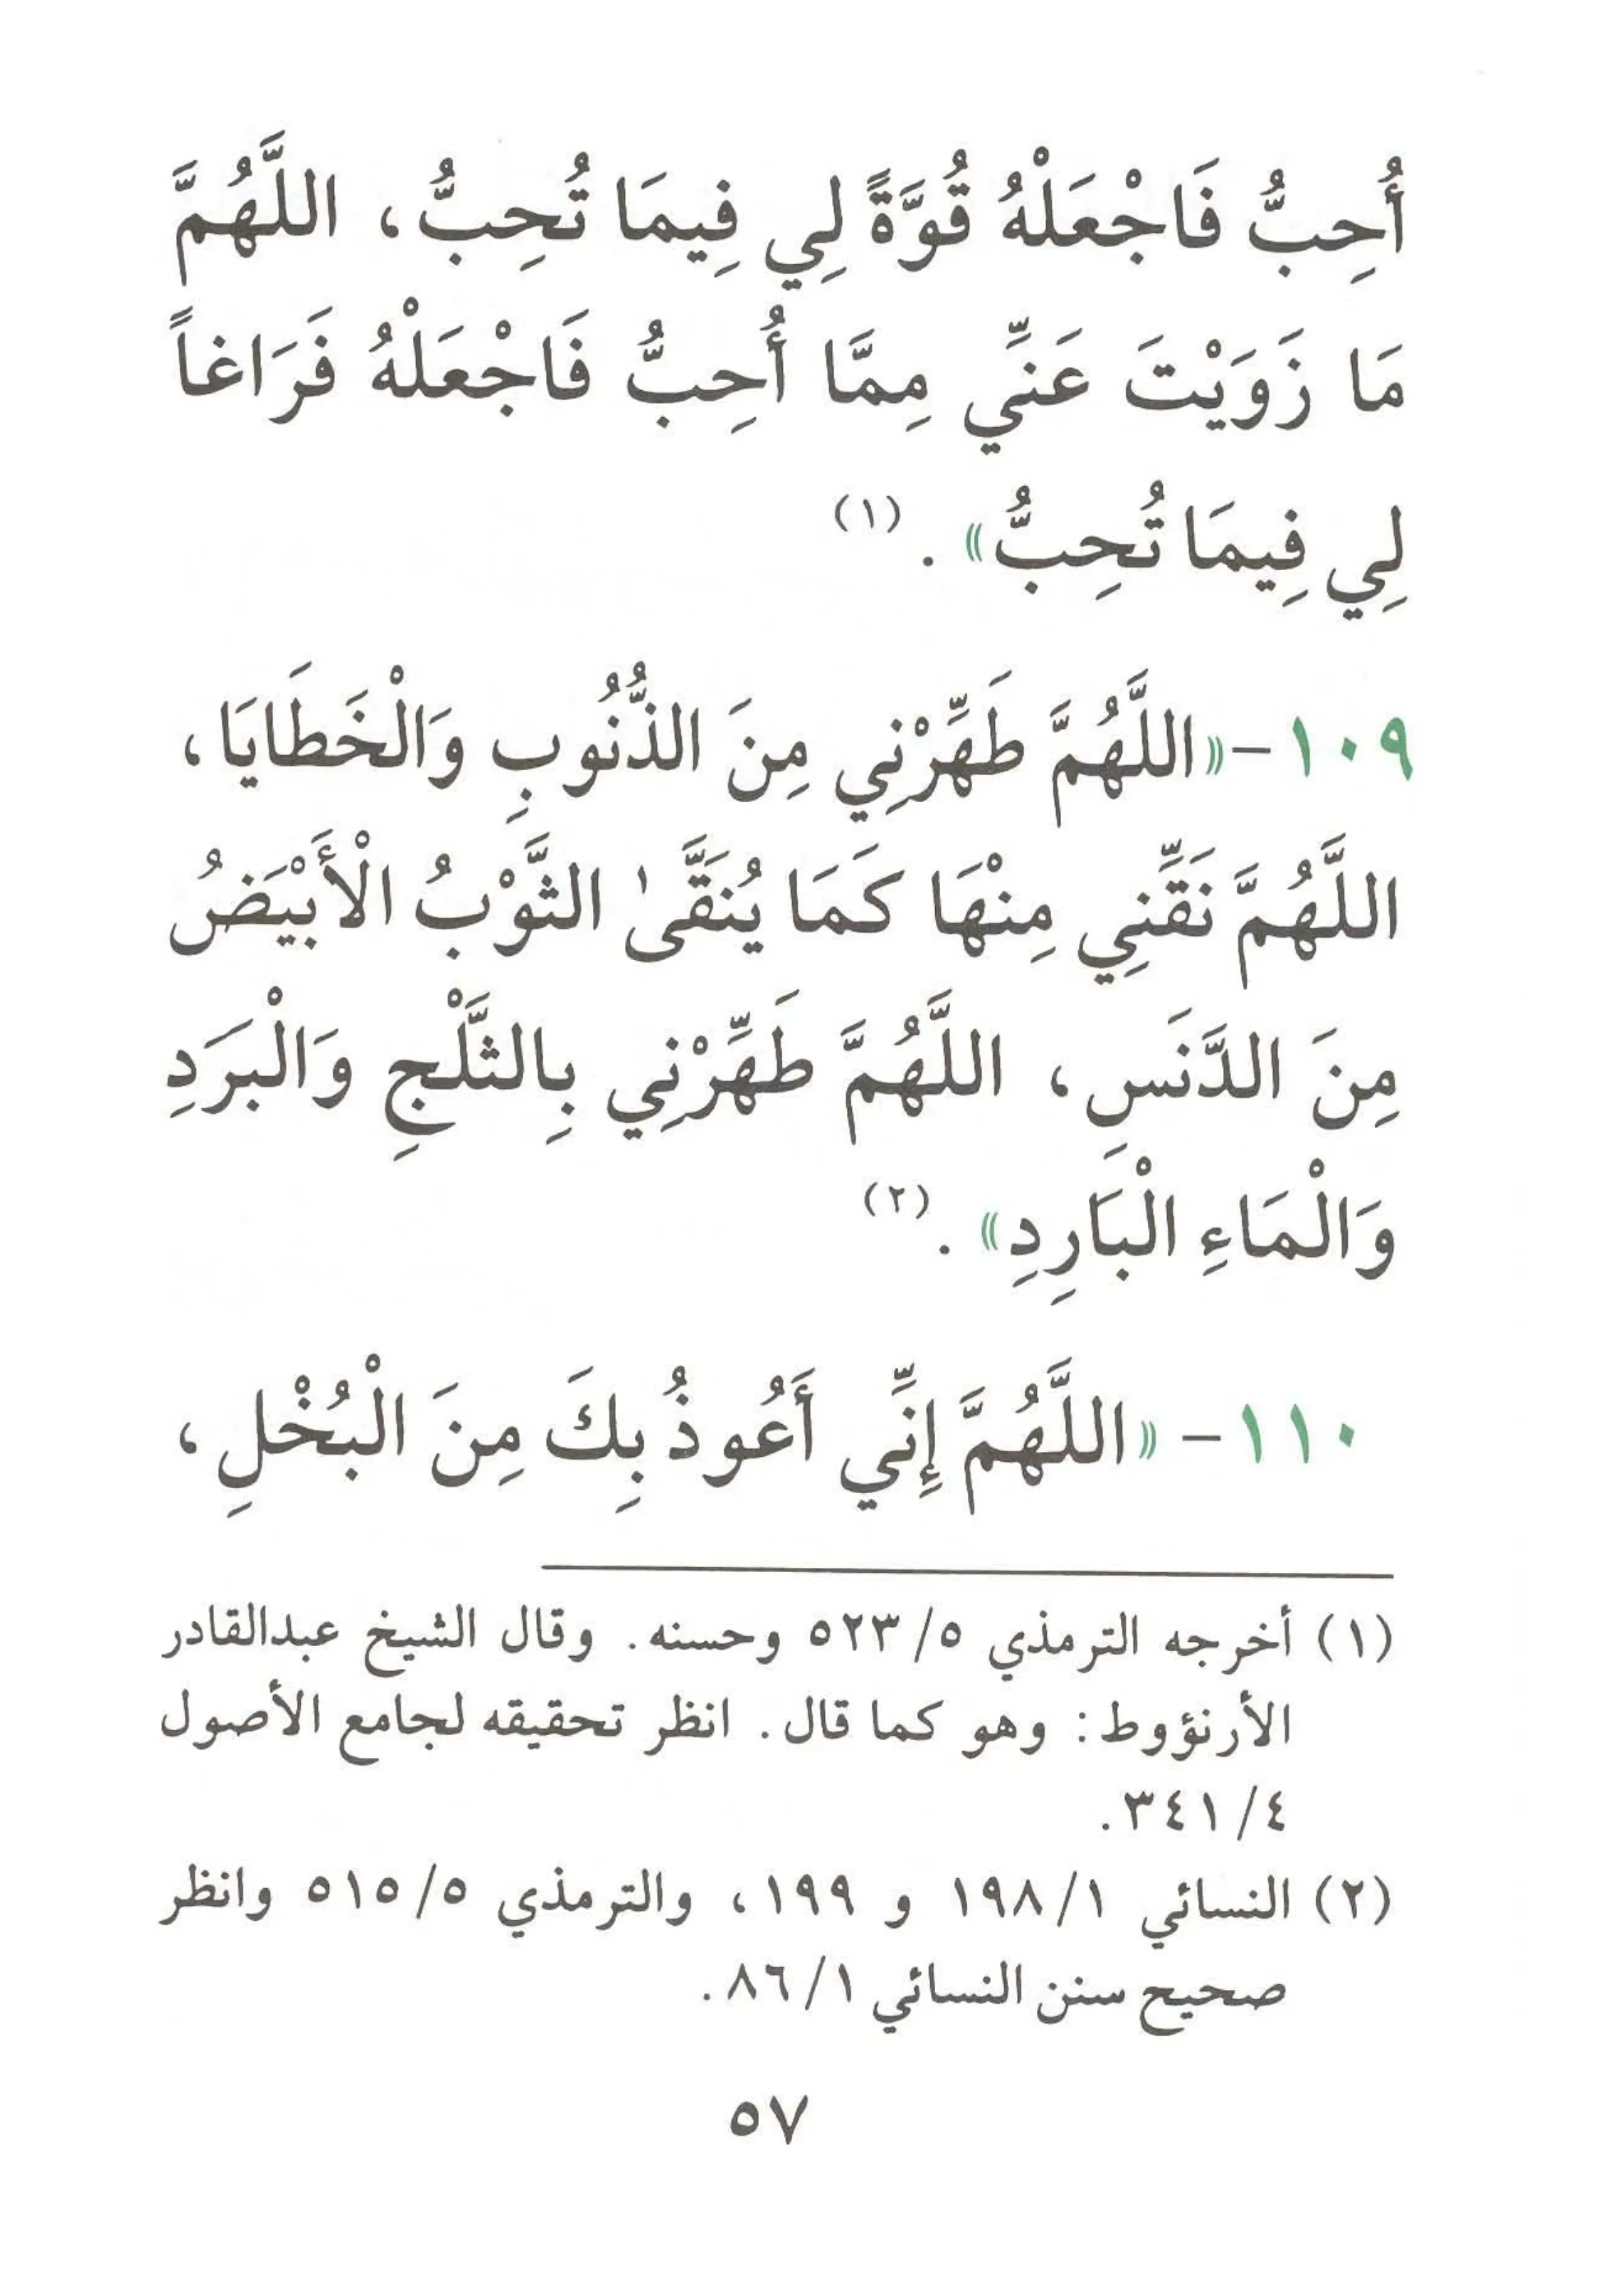 أُحِبُّ فَاجْعَلْهُ قُوَّةً لِي فِيمَا تُحِبُّ، اللَّهُمَّ
مَا زَوَيْتَ عَنِّي مِمَّا أُحِبُّ فَاجْعَلْهُ فَرَاغاً
لِي فِيمَا تُحِبُّ» . (١)
١٠٩- «اللَّهُمَّ طَهِّرْنِي مِنَ الذُّنُوبِ وَالْخَطَايَا،
اللَّهُمَّ نَقِّنِي مِنْهَا كَمَا يُنَقَّىٰ الثَّوْبُ الْأَبْيَضُ
مِنَ الدَّنَسِ، اللَّهُمَّ طَهِّرْنِي بِالثَّلْجِ وَالْبَرَدِ
وَالْمَاءِ الْبَارِدِ» . (٢)
١١٠- «اللَّهُمَّ إِنِّي أَعُوذُ بِكَ مِنَ الْبُخْلِ،
(١) أخرجه الترمذي ٥/ ٥٢٣ وحسنه. وقال الشيخ عبدالقادر
الأرنؤوط: وهو كما قال. انظر تحقيقه لجامع الأصول
٤/ ٣٤١.
(٢) النسائي ١/ ١٩٨ و ١٩٩، والترمذي ٥/ ٥١٥ وانظر
صحيح سنن النسائي ١/ ٨٦.
٥٧